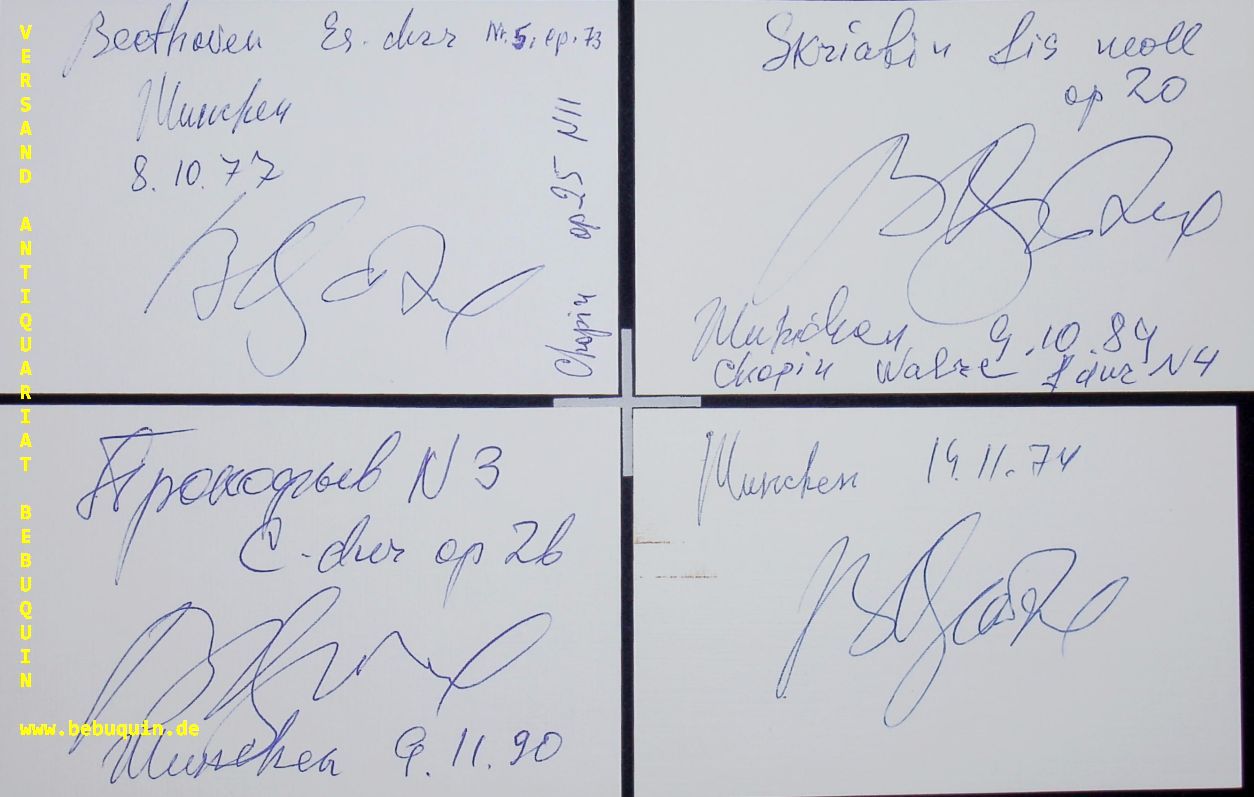 Beethoven Es-dur Nr. 5, op. 73
München
8.10.77
Chopin op 25 N11
Skriabin fis moll
op 20
München 9.10.84
Chopin Walze dur N4
Прокофьев N 3
C-dur op 26
München 9.11.90
München 19.11.74
VERSAND ANTIQUARIAT BEBUQUIN
www.bebuquin.de